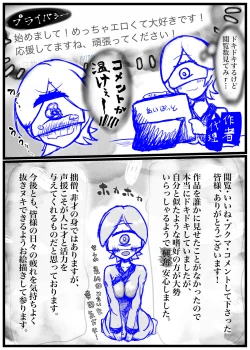 プライバシー
始めまして！めっちゃエロくて大好きです！
応援してますね、頑張ってください！
ドキドキするけど
閲覧数見てみr…
コメントが
温けぇ〜！
あいぱっど
作者
代理
閲覧・いいね・ブクマ・コメントして下さった
皆様、ありがとうございます！
作品を誰かに見せたことがなかったので
本当にドキドキしていましたが、
自分と似たような嗜好の方が大勢
いらっしゃるようで 安心しました。
ホカホカ
拙僧、非才の身ではありますが、
声援こそが人に才と活力を
与えてくれるものだと思っております。
今後とも、皆様の日々の疲れを気持ちよく
抜きヌキできるようお絵描きして参ります。